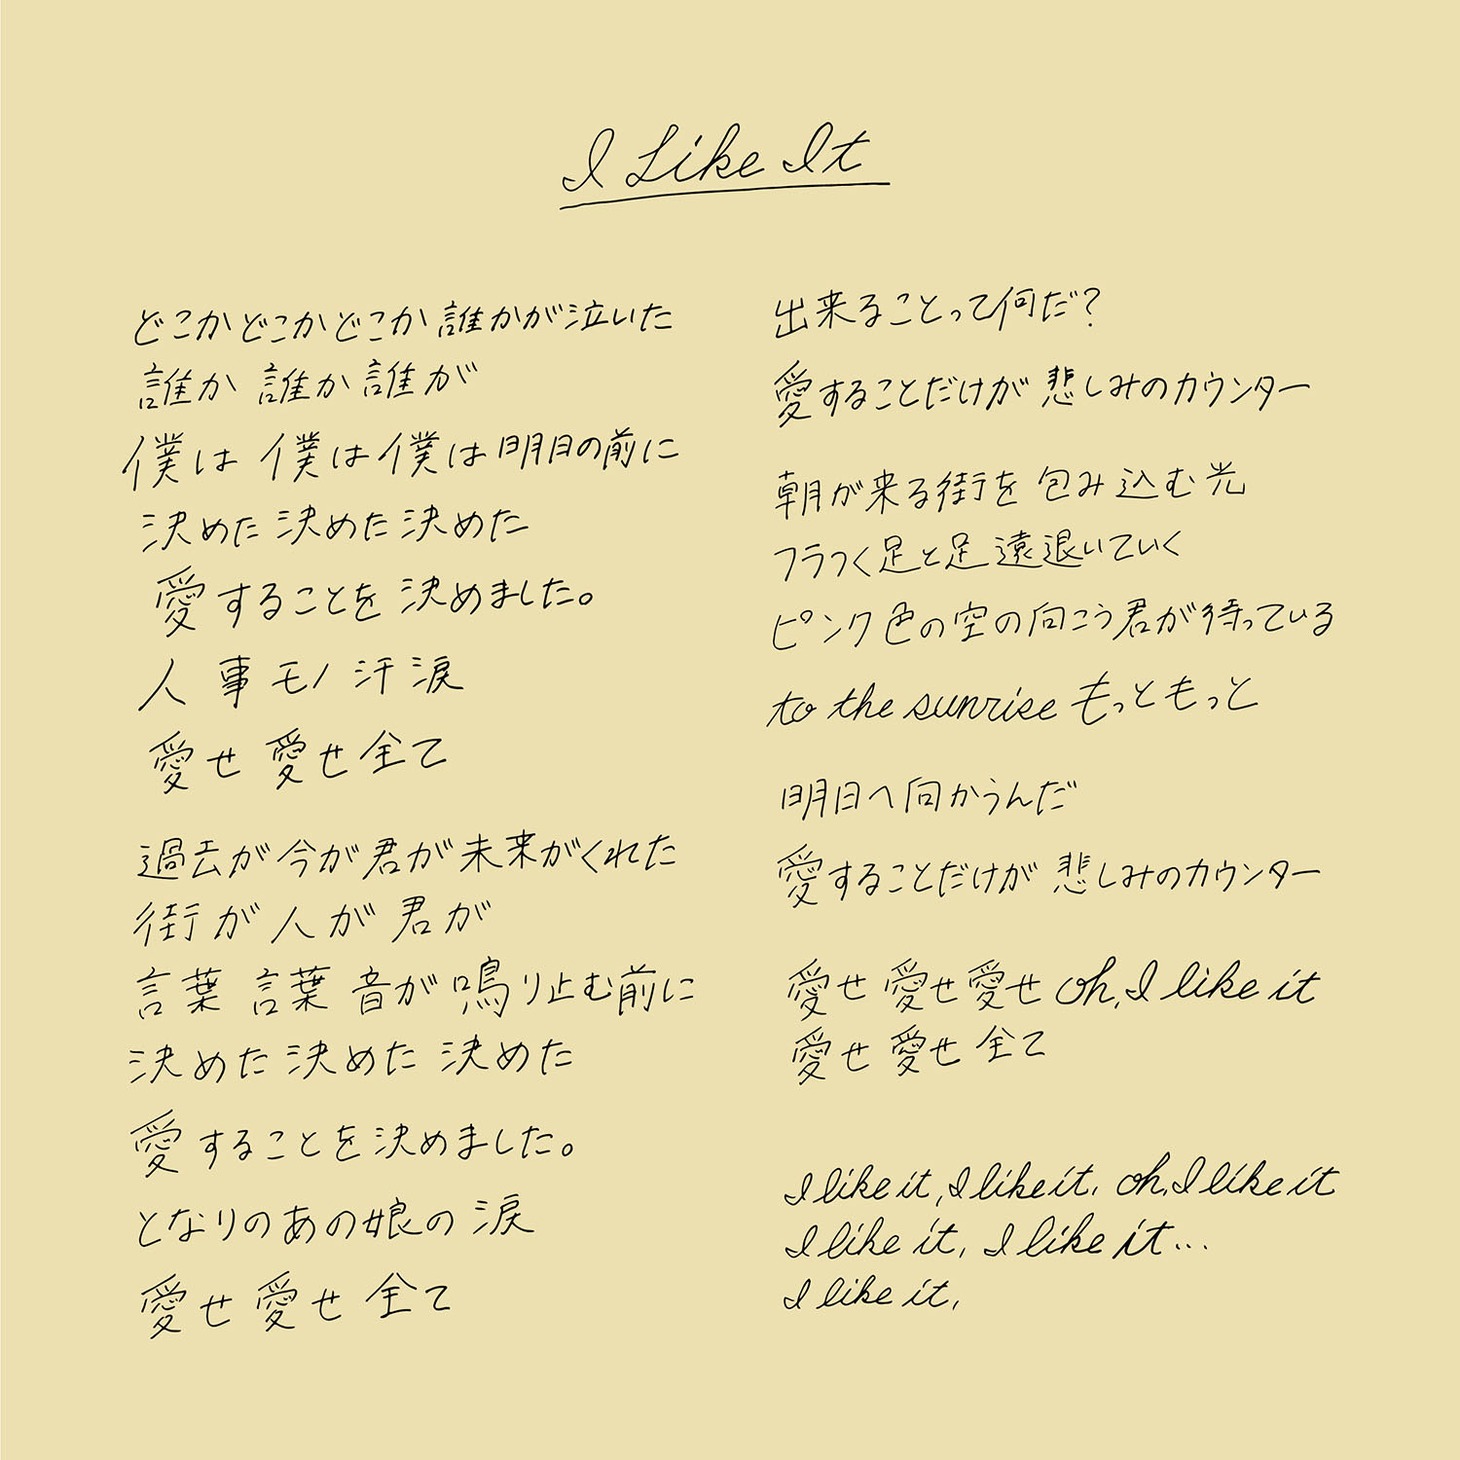 I Like It
どこかどこかどこか 誰かが泣いた
誰か 誰か 誰が
僕は 僕は 僕は 明日の前に
決めた 決めた 決めた
愛することを 決めました。
人 事 モノ 汗 涙
愛せ 愛せ 全て
過去が今が君が未来がくれた
街が人が君が
言葉 言葉 音が鳴り止む前に
決めた 決めた 決めた
愛することを決めました。
となりのあの娘の涙
愛せ 愛せ 全て
出来ることって何だ?
愛することだけが 悲しみのカウンター
朝が来る街を 包み込む光
フラつく足と足 遠退いていく
ピンク色の空の向こう君が待っている
to the sunrise もっともっと
明日へ向かうんだ
愛することだけが 悲しみのカウンター
愛せ 愛せ 愛せ oh, I like it
愛せ 愛せ 全て
I like it, I like it, oh, I like it
I like it, I like it...
I like it,